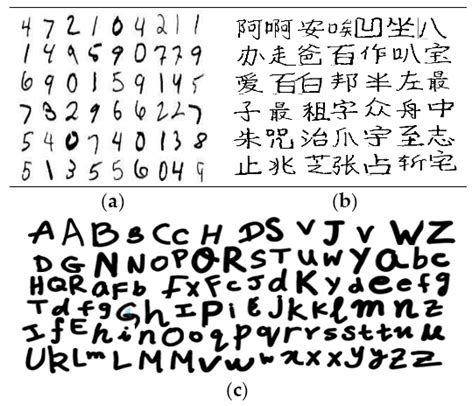 4 7 2 1 0 4 2 1 1
1 4 9 5 9 0 7 7 9
6 9 0 1 5 9 1 4 5
7 3 2 9 6 6 2 2 7
5 4 0 7 4 0 1 3 8
5 1 3 5 5 6 0 4 9
(a)
阿 啊 安 唉 凹 坐 八
办 走 爸 百 作 叭 宝
爱 百 白 邦 半 左 最
子 最 祖 字 众 舟 中
朱 咒 治 爪 宇 至 志
止 兆 芝 张 占 斩 宅
(b)
A A B B C c H D S V J V W Z
D G N N O P O R S T U w Y a b c
H Q R a F b f x F c J d K y d e e f g
T d f g G h I P i E j K k l m n z
I f E h i n O o q p q r r s s t t u u
U R L m L M M V v w w x x x y y z z
(c)